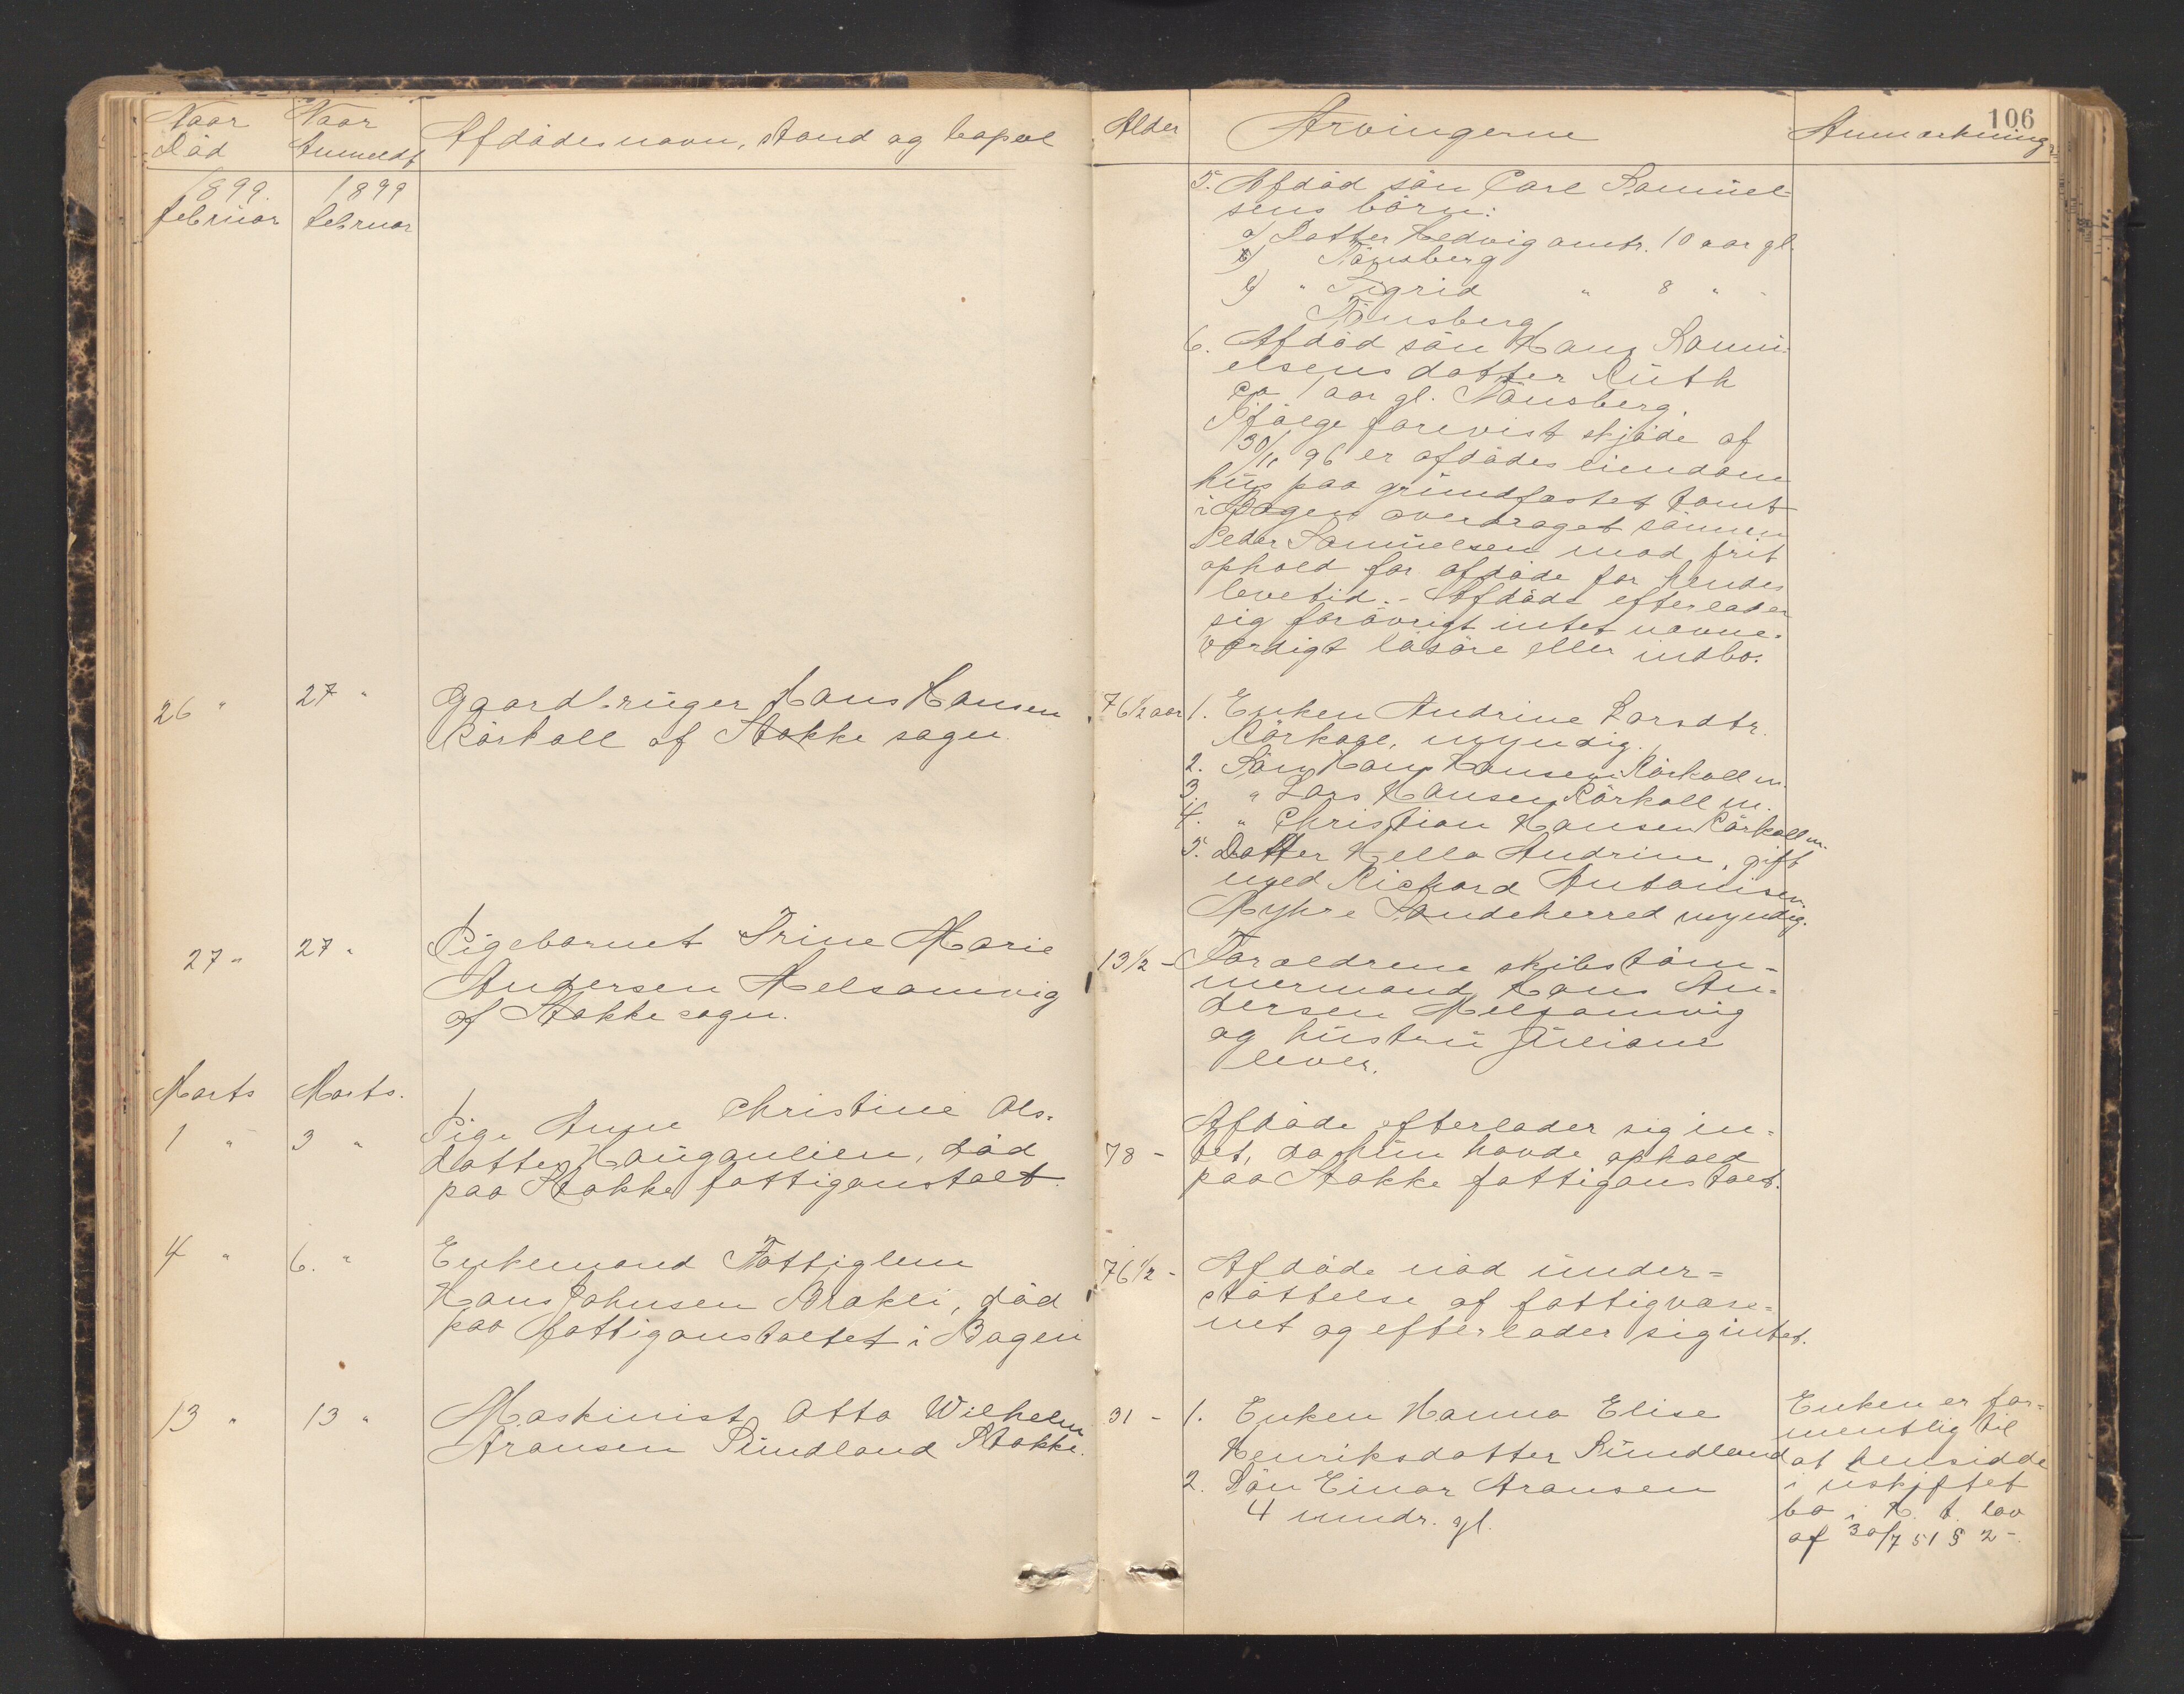 106
Naar Død
Naar Anmeldt
Afdødes navn, stand og bopæl
Alder
Arvingerne
Anmærkning
1899. februar
1899 februar
5. Afdød søn Carl Samuel-
sens børn:
a) Datter Hedvig omtr. 10 aar gl.
Tønsberg
b) " Sigrid " 8 " -
Tønsberg
6. Afdød søn Hans Samu-
elsens datter Ruth
ca 1 aar gl. Tønsberg.
Ifølge forevist skjøde af
30/11 96 er afdødes eiendom
hus paa grundfæstet tomt
i Bogen overdraget sønnen
Peder Samuelsen mod frit
ophold for afdøde for hendes
levetid. - Afdøde efterlader
sig forøvrigt intet navne-
værdigt løsøre eller indbo.
26 "
27 "
Gaardbruger Hans Hansen
Rørkoll af Stokke sogn.
76 1/2 aar
1. Enken Andrine Larsdtr.
Rørkoll, myndig.
2. Søn Hans Hansen Rørkoll m.
3. " Lars Hansen Rørkoll m.
4. " Christian Hansen Rørkoll m.
5. Datter Hella Andrine, gift
med Richard Antonisen
Myhre Sandeherred myndig.
27 "
27 "
Pigebarnet Trine Marie
Andersen Melsomvig
af Stokke sogn.
13 1/2 -
Forældrene skibstøm-
mermand Hans An-
dersen Melsomvig
og hustru Juliane
lever.
Marts
Marts.
1 "
3 "
Pige Anne Christine Ols-
datter Hauganlien, død
paa Stokke fattiganstalt.
78 -
Afdøde efterlader sig in-
tet, da hun havde ophold
paa Stokke fattiganstalt.
4 "
6. "
Enkemand Fattiglem
Hans Johnsen Brakli, død
paa fattiganstaltet i Bogen
76 1/2 -
Afdøde nød under-
støttelse af fattigvæse-
net og efterlader sig intet.
13 "
13 "
Maskinist Otto Wilhelm
Aronsen Sundland Stokke.
31 -
1. Enken Hanna Elise
Henriksdatter Sundland
2. Søn Einar Aronsen
4 mndr. gl.
Enken er for-
mentlig til
at hensidde
i uskiftet
bo i H. t. lov
af 30/7 51 § 2 -